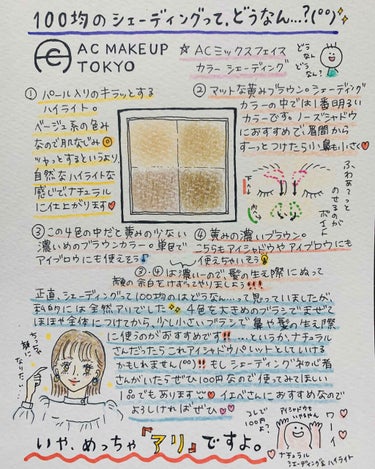 100均のシェーディングって、どうなん…?(°°)
AC MAKEUP
TOKYO
☆ACミックスフェイス
カラー シェーディング
どうなん
どうなん?
① パール入りのキラッとする
ハイライト。
ベージュ系の色み
なので肌なじみ
ツヤっとするというより、
自然なハイライトな
感じでナチュラル
に仕上がります♥
② マットな黄みブラウン。シェーディング
カラーの中では1番明るい
カラーです。ノーズシャドウ
におすすめで、眉間から
すーっとつけたら小鼻も小さく♥
ふわあ〜っと
のせるのが
ポイント
③ この4色の中だと黄みの少ない
濃いめのブラウンカラー。単色で
アイブロウにも使えそう
④ 黄みの濃いブラウン。
こちらもアイシャドウやアイブロウにも
使えちゃいそう
③・④は濃いので髪の生え際にぬって
顔の余白をけずってやりましょう!!!
正直、シェーディングって100均のはどうなん…って思っていましたが、
私的には全然アリでした。4色を大きめのブラシでまぜて
ほほや全体につけてから、少し小さいブラシで鼻や髪の生え際
に使うのがおすすめです!!…というか、ナチュラル
さんだったらこれアイシャドウパレットとしていける
かもしれません(°°)!! もしシェーディング初心者
さんがいたらぜひ100円なので使ってみてほしい
1品でもあります イエベさんにおすすめなので
よろしければぜひ♥
ちっちゃい
顔に
なりたい…
アイシャドウでも
いけちゃいそう
コレで
100円
よ?
ワーイ
ナチュラル
シェーディング&ハイライト
いや、めっちゃ『アリ』ですよ。